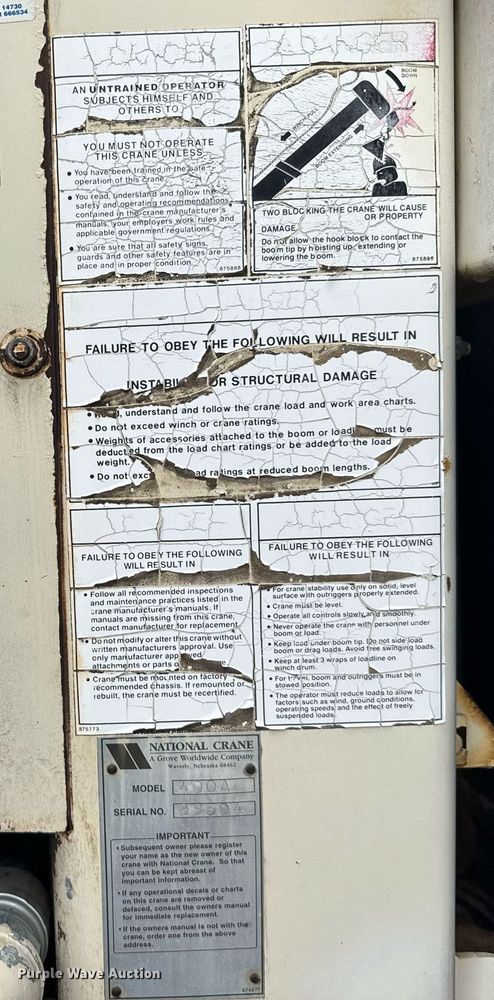 14730
666534
DANGER
AN UNTRAINED OPERATOR
SUBJECTS HIMSELF AND
OTHERS TO
YOU MUST NOT OPERATE
THIS CRANE UNLESS
• You have been trained in the safe
operation of this crane.
• You read, understand and follow the
safety and operating recommendations
contained in the crane manufacturer's
manuals, your employers work rules and
applicable government regulations.
• You are sure that all safety signs,
guards and other safety features are in
place and in proper condition.
875855
BOOM
DOWN
BOOM EXTENSION
TWO BLOCKING THE CRANE WILL CAUSE
OR PROPERTY
DAMAGE
Do not allow the hook block to contact the
boom tip by hoisting up, extending or
lowering the boom.
875896
FAILURE TO OBEY THE FOLLOWING WILL RESULT IN
OR STRUCTURAL DAMAGE
understand and follow the crane load and work area charts.
• Do not exceed winch or crane ratings.
• Weights of accessories attached to the boom or must be
deducted from the load chart ratings or be added to the load
weight.
• Do not ratings at reduced boom lengths.
FAILURE TO OBEY THE FOLLOWING
WILL RESULT IN
• Follow all recommended inspections
and maintenance practices listed in the
crane manufacturer's manuals. If
manuals are missing from this crane,
contact manufacturer for replacement.
• Do not modify or alter this crane without
written manufacturers approval. Use
only manufacturer approved
attachments or parts
• Crane must be mounted on factory
recommended chassis. If remounted or
rebuilt, the crane must be recertified.
875773
FAILURE TO OBEY THE FOLLOWING
WILL RESULT IN
• For crane stability use only on solid, level
surface with outriggers properly extended.
• Crane must be level.
• Operate all controls slowly and smoothly.
• Never operate the crane with personnel under
boom or load.
• Keep load under boom tip. Do not side load
boom or drag loads. Avoid free swinging loads.
• Keep at least 3 wraps of loadline on
winch drum.
• For travel, boom and outriggers must be in
stowed position.
• The operator must reduce loads to allow for
factors such as wind, ground conditions,
operating speeds and the effect of freely
suspended loads.
NATIONAL CRANE
A Grove Worldwide Company
Waverly, Nebraska 68462
MODEL 400A
SERIAL NO.
IMPORTANT
• Subsequent owner please register
your name as the new owner of this
crane with National Crane. So that
you can be kept abreast of
important information.
• If any operational decals or charts
on this crane are removed or
defaced, consult the owners manual
for immediate replacement.
• If the owners manual is not with the
crane, order one from the above
address.
Purple Wave Auction